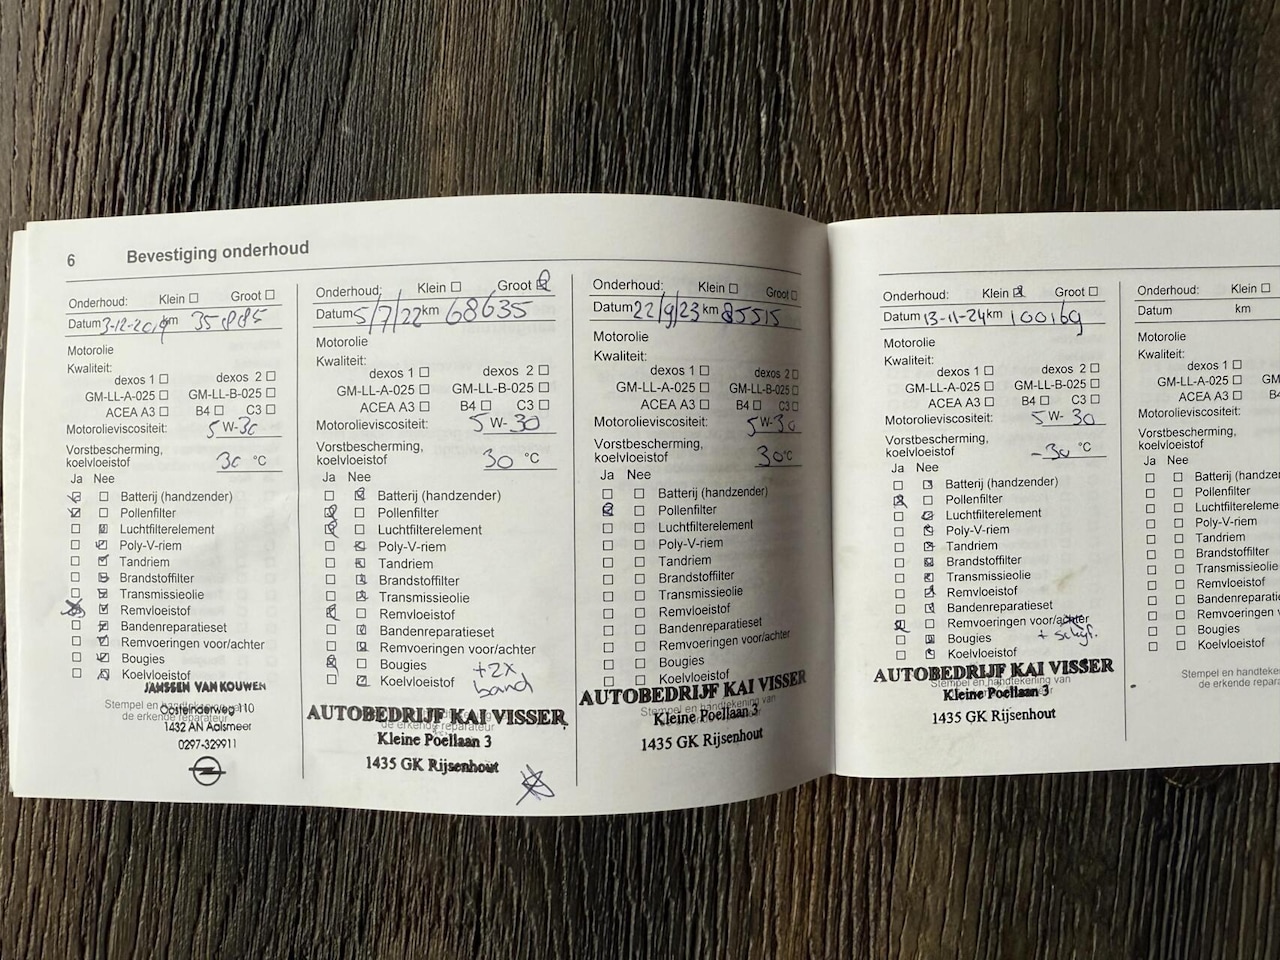 6 Bevestiging onderhoud
Onderhoud: Klein ☐ Groot ☐
Datum 3-12-2019 km 35885
Motorolie
Kwaliteit:
dexos 1 ☐ dexos 2 ☐
GM-LL-A-025 ☐ GM-LL-B-025 ☐
ACEA A3 ☐ B4 ☐ C3 ☐
Motorolieviscositeit: 5 W-30
Vorstbescherming,
koelvloeistof 30 °C
Ja Nee
Batterij (handzender)
Pollenfilter
Luchtfilterelement
Poly-V-riem
Tandriem
Brandstoffilter
Transmissieolie
Remvloeistof
Bandenreparatieset
Remvoeringen voor/achter
Bougies
Koelvloeistof
JANSSEN VAN KOUWEN
Stempel en handtekening van
Oosteinderweg 110
de erkende reparateur
1432 AN Aalsmeer
0297-329911
Onderhoud: Klein ☐ Groot ☒
Datum 5/7/22 km 68635
Motorolie
Kwaliteit:
dexos 1 ☐ dexos 2 ☐
GM-LL-A-025 ☐ GM-LL-B-025 ☐
ACEA A3 ☐ B4 ☐ C3 ☐
Motorolieviscositeit: 5 W-30
Vorstbescherming,
koelvloeistof 30 °C
Ja Nee
Batterij (handzender)
Pollenfilter
Luchtfilterelement
Poly-V-riem
Tandriem
Brandstoffilter
Transmissieolie
Remvloeistof
Bandenreparatieset
Remvoeringen voor/achter
Bougies
Koelvloeistof
+2x
band
AUTOBEDRIJF KAI VISSER
de erkende reparateur
Kleine Poellaan 3
1435 GK Rijsenhout
Onderhoud: Klein ☐ Groot ☐
Datum 22/9/23 km 85515
Motorolie
Kwaliteit:
dexos 1 ☐ dexos 2 ☐
GM-LL-A-025 ☐ GM-LL-B-025 ☐
ACEA A3 ☐ B4 ☐ C3 ☐
Motorolieviscositeit: 5 W-30
Vorstbescherming,
koelvloeistof 30 °C
Ja Nee
Batterij (handzender)
Pollenfilter
Luchtfilterelement
Poly-V-riem
Tandriem
Brandstoffilter
Transmissieolie
Remvloeistof
Bandenreparatieset
Remvoeringen voor/achter
Bougies
Koelvloeistof
AUTOBEDRIJF KAI VISSER
Stempel en handtekening van
Kleine Poellaan 3
de erkende reparateur
1435 GK Rijsenhout
Onderhoud: Klein ☒ Groot ☐
Datum 13-11-24 km 100169
Motorolie
Kwaliteit:
dexos 1 ☐ dexos 2 ☐
GM-LL-A-025 ☐ GM-LL-B-025 ☐
ACEA A3 ☐ B4 ☐ C3 ☐
Motorolieviscositeit: 5 W-30
Vorstbescherming,
koelvloeistof -30 °C
Ja Nee
Batterij (handzender)
Pollenfilter
Luchtfilterelement
Poly-V-riem
Tandriem
Brandstoffilter
Transmissieolie
Remvloeistof
Bandenreparatieset
Remvoeringen voor/achter
Bougies
Koelvloeistof
AUTOBEDRIJF KAI VISSER
Stempel en handtekening van
Kleine Poellaan 3
de erkende reparateur
1435 GK Rijsenhout
Onderhoud: Klein ☐
Datum km
Motorolie
Kwaliteit:
dexos 1 ☐
GM-LL-A-025 ☐ GM
ACEA A3 ☐ B4
Motorolieviscositeit:
Vorstbescherming,
koelvloeistof
Ja Nee
Batterij (handzender)
Pollenfilter
Luchtfilterelement
Poly-V-riem
Tandriem
Brandstoffilter
Transmissieolie
Remvloeistof
Bandenreparatieset
Remvoeringen voor/
Bougies
Koelvloeistof
Stempel en handteken
de erkende reparateur